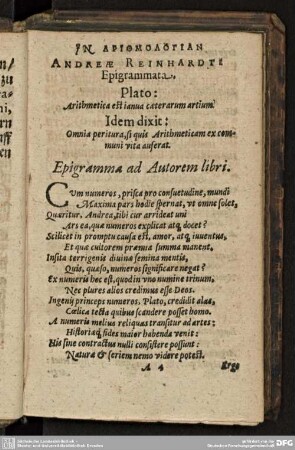 IN ARITHMOLOGIAN
ANDREÆ REINHARDTI
Epigrammata.
Plato:
Arithmetica est ianua cæterarum artium.
Idem dixit:
Omnia peritura, si quis Arithmeticam ex com-
muni vita auferat.
Epigramma ad Autorem libri.
CUm numeros, prisca pro consuetudine, mundi
Maxima pars hodie spernat, vt omne solet,
Quæritur. Andrea, tibi cur arrideat uni
Ars ea, quæ numeros explicat atq; docet?
Scilicet in promptu causa est, amor, atq; iuventus,
Et quæ cultorem præmia summa manent.
Insita terrigenis divinæ semina mentis,
Quis, quæso, numeros significare negat?
Ex numeris hec est, quod in vno numine trinum,
Nec plures alios credimus esse Deos.
Ingenij princeps numeros, Plato, credidit alas,
Cælica tecta quibus scandere posset homo.
A numeris melius reliquas transitur ad artes:
Historiaq; fides maior habenda venit:
His sine contractus nulli consistere possunt:
Naturæ & seriem nemo videre potest.
A 4 Ergo